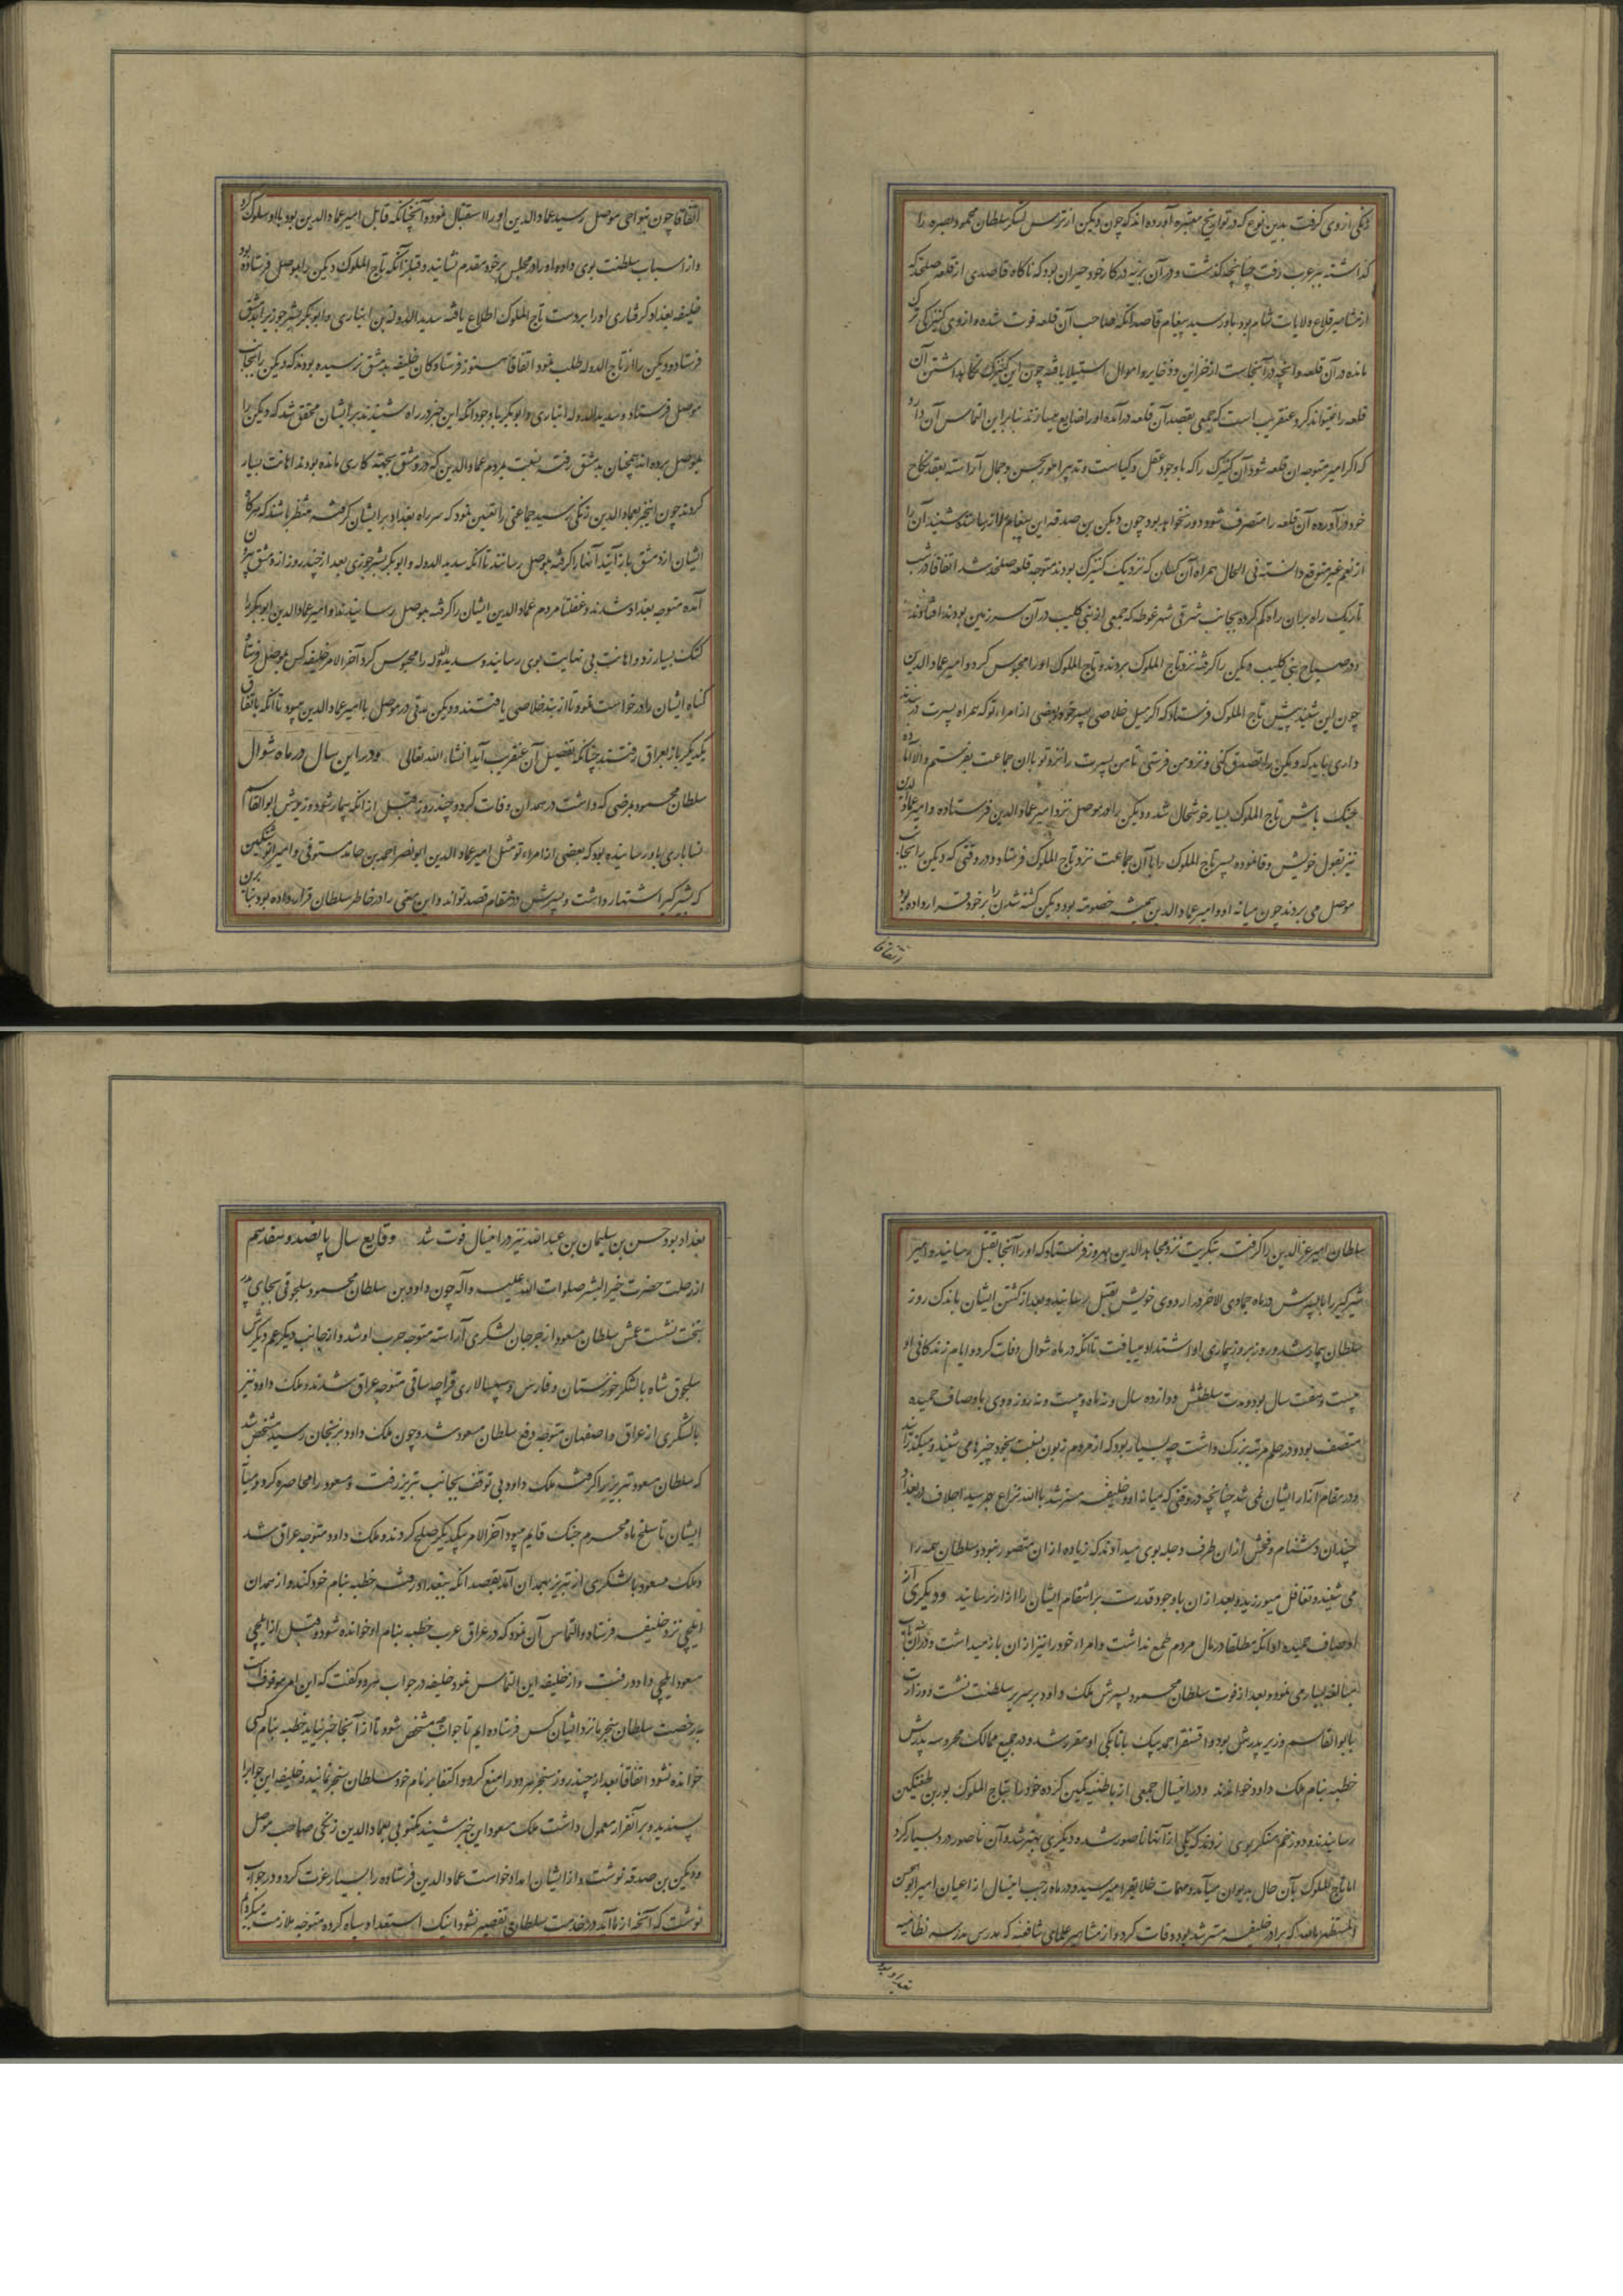 زنکی از وی کرفت بدین نوع که در تواریخ معتبره آورده اند که چون دیکن از ترس لشکر سلطان محمود بصره را
کذاشته ببر عرب رفت چنانچه کذشت و در آن بریه در کار خود حیران بود که ناکاه قاصدی از قلعه صلخد که
از مشاهیر قلاع ولایات شام بود باو رسید پیغام قاصد آنکه صاحب آن قلعه فوت شده و از وی کنیزکی ترک
مانده در آن قلعه و آنچه در آنجاست از خزاین و ذخایر و اموال استیلا یافته چون این کنیزک نکاهداشتن آن
قلعه را نمیتواند کرد عنقریب است که جمعی بقصد آن قلعه در آمده او را ضایع میسازند بنابراین التماس آن دارد
که اکر امیر متوجه ان قلعه شود آن کنیزک را که باوجود عقل و کیاست و تدبیر امور بحسن و جمال آراسته بعقد نکاح
خود در آورده آن قلعه را متصرف شود دور نخواهد بود چون دیکن بن صدقه این پیغام شنید ان را
از نعم غیر متوقع دانسته فی الحال همراه آن کسان که نزدیک کنیزک بودند متوجه قلعه صلخد شد اتفاقا در شب
تاریک راه بران راه کم کرده بجانب شرقی شهر غوطه که جمعی از بنی کلیب در آن سرزمین بودند افتادند
و در صباح بنی کلیب دیکن را کرفته نزد تاج الملوک بردند و تاج الملوک او را محبوس کرد و امیر عماد الدین
چون این شنید پیش تاج الملوک فرستاد که اکر میل خلاصی پسر خود و بعضی از امراء تو که همراه پسرت در بند
داری باید که دیکن را تصدق کنی و نزد من فرستی تا من پسرت را نزد تو با ان جماعت بفرستم والا آماده
جنک باش تاج الملوک بسیار خوشحال شد و دیکن را در موصل نزد امیر عماد الدین فرستاده و امیر عماد الدین
نیز بقول خویش وفا نموده پسر تاج الملوک را با آن جماعت نزد تاج الملوک فرستاد و در وقتی که دیکن را بجانب
موصل می بردند چون میانه او و امیر عماد الدین همیشه خصومت بود دیکن کشته شدن را بر خود قرار داده بود
اتفاقا
اتفاقا چون بنواحی موصل رسید عماد الدین او را استقبال نمود و آنچنانکه قابل امیر عماد الدین بود با او سلوک کرد
و از اسباب سلطنت بوی داده او را در مجلس بر خود مقدم نشانید و قبل از آنکه تاج الملوک دیکن را بموصل فرستاده بود
خلیفه بغداد کرفتاری او را بر دست تاج الملوک اطلاع یافته سدید الدوله بن انباری و ابوبکر بشر جوزیرا بدمشق
فرستاده و دیکن را از تاج الدوله طلب نمود اتفاقا هنوز فرستادکان خلیفه بدمشق نرسیده بودند که دیکن را بجانب
موصل فرستاد و سدید الدوله انباری و ابوبکر باوجود آنکه این خبر در راه شنیدند بر ایشان محقق شد که دیکن را
بموصل برده اند همچنان بدمشق رفته نسبت بمردم عماد الدین که در دمشق بجهت کاری مانده بودند اهانت بسیار
کردند چون اینخبر بعماد الدین زنکی رسید جماعتی را تعیین نمود که سر راه بغداد بر ایشان کرفته منتظر باشند که هرکاه
ایشان از دمشق باز آیند آنها را کرفته بموصل رسانند تا آنکه سدید الدوله و ابوبکر بشر جوزی بعد از چند روز از دمشق بیرون
آمده متوجه بغداد شدند و غفلتا مردم عماد الدین ایشان را کرفته بموصل رسانیدند و امیر عماد الدین ابوبکر را
کتک بسیار زد و اهانت بی نهایت بوی رسانید و سدید الدوله را محبوس کرد آخر الامر خلیفه کس بموصل فرستاد
کناه ایشان را درخواست نمود تا از بند خلاصی یافتند و دیکن مدتی در موصل با امیر عماد الدین میبود تا آنکه باتفاق
یکدیکر باز بعراق رفتند چنانکه تفصیل آن عنقریب آید انشاء الله تعالی و در این سال در ماه شوال
سلطان محمود بمرضی که داشت در همدان وفات کرد و چند روز قبل از آنکه بیمار شود وزیرش ابوالقاسم
نسابادی باو رسانیده بود که بعضی از امراء تو مثل امیر عماد الدین ابونصر احمد بن حامد مستوفی و امیر انوشتکین
که بشیر کیر اشتهار داشت و پسرش در مقام قصد تواند و این معنی را در خاطر سلطان قرار داده بود بنابرین
سلطان امیر عزالدین را کرفته بتکریت نزد مجاهد الدین بهروز فرستاد که او را آنجا بقتل رسانید و امیر
شیرکیر را با پسرش در ماه جمادی الاخر در اردوی خویش بقتل رسانید و بعد از کشتن ایشان باندک روز
سلطان بیمار شد و روز بروز بیماری او اشتداد مییافت تا آنکه در ماه شوال وفات کرد و ایام زندکانی او
بیست و هفت سال بود و مدت سلطنتش دوازده سال و نه ماه و بیست و نه روز و وی باوصاف حمیده
متصف بود و در حلم مرتبه بزرک داشت چه بسیار بود که از مردم زبون نسبت بخود چیزها می شنید و میکذرانید
و در مقام آزار ایشان نمی شد چنانچه در وقتی که میانه او و خلیفه مسترشد بالله نزاع بهم رسید اجلاف در بغداد
چندان دشنام و فحش از ان طرف دجله بوی میدادند که زیاده از ان متصور نبود و سلطان همه را
می شنید و تغافل میورزید و بعد از ان باوجود قدرت بر انتقام ایشان را آزار نرسانید و دیکری از
اوصاف حمیده او آنکه مطلقا در مال مردم طمع نداشت و امراء خود را نیز از ان باز میداشت و در آن باب
مبالغه بسیار می نمود و بعد از فوت سلطان محمود پسرش ملک داود بر سریر سلطنت نشست و وزارت
بابوالقاسم وزیر پدرش بود و اقسنقر احمدبیک باتابکی او مقرر شد و در جمیع ممالک محروسه پدرش
خطبه بنام ملک داود خواندند و در اینسال جمعی از باطنیه کمین کرده خود را بتاج الملوک بوری بن طغتکین
رسانیدند و دو زخم منکر بوی زدند که یکی از آنها ناصور شد و دیکری بهتر شد و آن ناصور درد بسیار کرد
اما تاج الملوک بآن حال بدیوان میآمد و مهمات خلایق را میرسید و در ماه رجب اینسال از اعیان امیر ابوالحسن
المستظهر بالله که برادر خلیفه مسترشد بود وفات کرد و از مشاهیر علمای شافعیه که مدرس مدرسه نظامیه
بغداد بود
بغداد بود حسن بن سلیمان بن عبدالله نیز در اینسال فوت شد وقایع سال پانصد و هفدهم
از رحلت حضرت خیر البشر صلوات الله علیه و آله چون داود بن سلطان محمود سلجوقی بجای پدر
بتخت نشست عمش سلطان مسعود از جرجان لشکری آراسته متوجه حرب او شد و از جانب دیکر عم دیکرش
سلجوق شاه با لشکر خوزستان و فارس و سپهسالاری قراجه ساقی متوجه عراق شدند و ملک داود نیز
با لشکری از عراق و اصفهان متوجه دفع سلطان مسعود شد و چون ملک داود بزنجان رسید مشخص شد
که سلطان مسعود تبریز را کرفته ملک داود بی توقف بجانب تبریز رفت و مسعود را محاصره کرد و میان
ایشان تا سلخ ماه محرم جنک قایم میبود آخر الامر بیکدیکر صلح کردند و ملک داود متوجه عراق شد
و ملک مسعود با لشکری از تبریز بهمدان آمد بقصد آنکه ببغداد رفته خطبه بنام خود کند و از همدان
ایلچی نزد خلیفه فرستاد و التماس آن نمود که در عراق عرب خطبه بنام او خوانده شود و قبل از ایلچی
مسعود ایلچی داود رفت و از خلیفه این التماس نمود خلیفه در جواب هر دو کفت که این امر موقوفست
برخصت سلطان سنجر ما نزد ایشان کس فرستاده ایم تا جواب مشخص شود تا از آنجا خبر نیاید خطبه بنام کسی
خوانده نشود اتفاقا بعد از چند روز سنجر هر دو را منع کرد و اکتفا بر نام خود سلطان سنجر نمایند و خلیفه این جواب را
پسندید و بر آنقرار معمول داشت ملک مسعود این خبر شنید مکتوبی بعماد الدین زنکی صاحب موصل
و دیکن بن صدقه نوشت و از ایشان امداد خواست عماد الدین فرستاده را بسیار عزت کرد و در جواب
نوشت که آنچه از ما آید در خدمت سلطان تقصیر نشود اینک استعداد سپاه کرده متوجه ملازمت میکردم